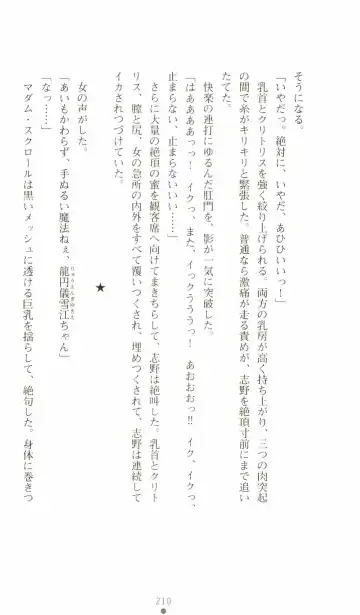 そうになる。
「いやだっ。絶対に、いやだ、あひひいいっ！」
乳首とクリトリスを強く絞り上げられる、両方の乳房が高く持ち上がり、三つの肉突起
の間で糸がキリキリと緊張した。普通なら激痛が走る責めが、志野を絶頂寸前にまで追い
たてた。
快楽の連打にゆるんだ肛門を、影が一気に突破した。
「はぁあああっっ！　イクっ、また、イっクううっ！　あおおおっ!!　イク、イクっ、
止まらない、止まらないいい……」
さらに大量の絶頂の蜜を観客席へ向けてまきちらして、志野は絶叫した。乳首とクリト
リス、膣と尻、女の急所の内外をすべて覆いつくされ、埋めつくされて、志野は連続して
イカされつづけていた。
★
女の声がした。
「あいもかわらず、手ぬるい魔法ねぇ、龍円儀雪江ちゃん」
「なっ……」
マダム・スクロールは黒いメッシュに透ける巨乳を揺らして、絶句した。身体に巻きつ
210